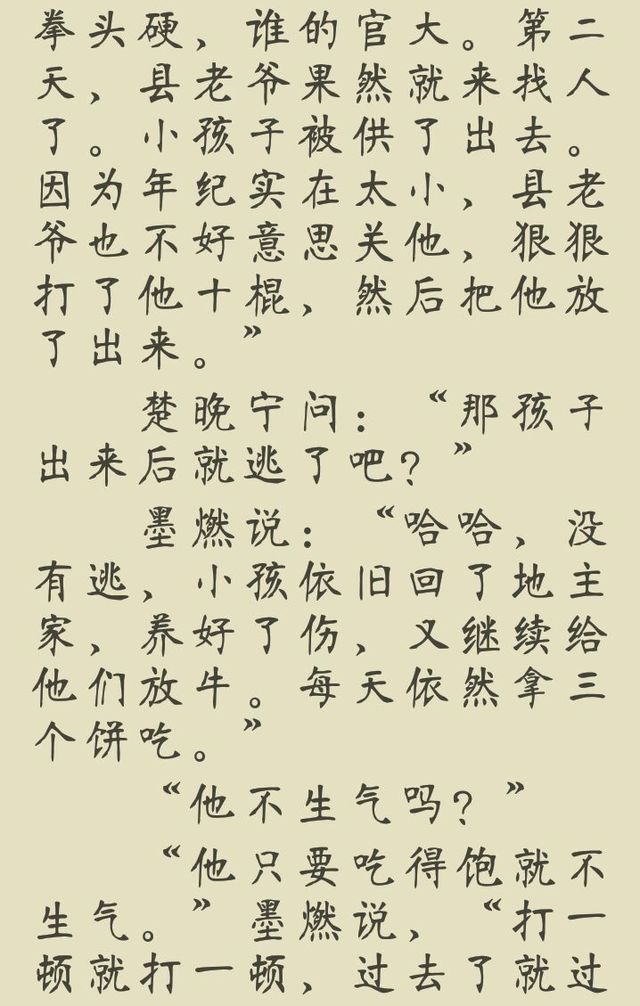 拳头硬，谁的官大。第二
天，县老爷果然就来找人
了。小孩子被供了出去。
因为年纪实在太小，县老
爷也不好意思关他，狠狠
打了他十棍，然后把他放
了出来。”
楚晚宁问：“那孩子
出来后就逃了吧？”
墨燃说：“哈哈，没
有逃，小孩依旧回了地主
家，养好了伤，又继续给
他们放牛。每天依然拿三
个饼吃。”
“他不生气吗？”
“他只要吃得饱就不
生气。”墨燃说，“打一
顿就打一顿，过去了就过